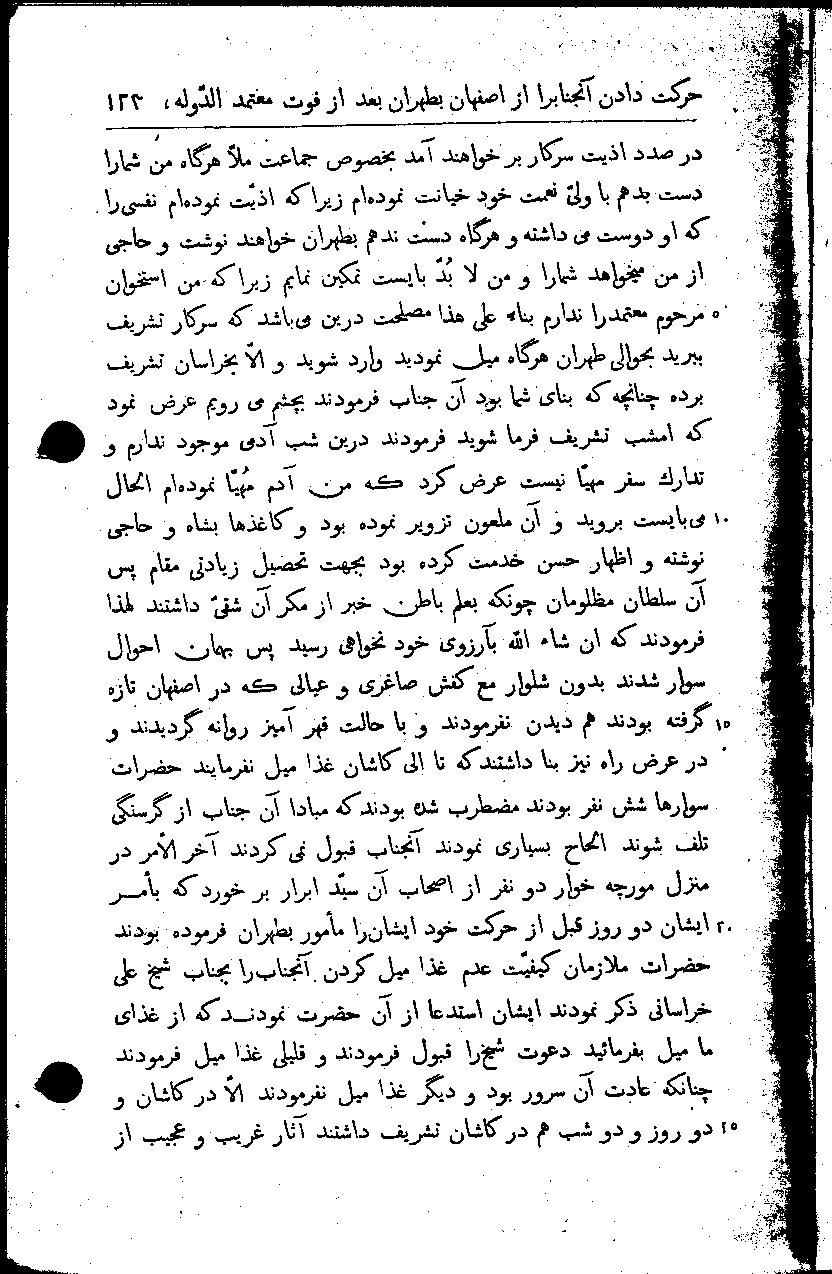 حرکت دادن آنجنابرا از اصفهان بطهران بعد از فوت معتمد الدّوله، ۱۲۳
در صدد اذیت سرکار بر خواهند آمد بخصوص جماعت ملاّ هرگاه من شمارا
دست بدهم با ولیّ نعمت خود خیانت نموده‌ام زیرا که اذیّت نموده‌ام نفسی‌را
که او دوست می داشته و هرگاه دست ندهم بطهران خواهند نوشت و حاجی
از من میخواهد شمارا و من لا بُدّ بایست تمکین نمایم زیرا که من استخوان
۵ مرحوم معتمدرا ندارم بناء علی هذا مصلحت درین می‌باشد که سرکار تشریف
ببرید بحوالی طهران هرگاه میل نمودید وارد شوید و الاّ بخراسان تشریف
برده چنانچه که بنای شما بود آن جناب فرمودند بچشم می رویم عرض نمود
که امشب تشریف فرما شوید فرمودند درین شب آدمی موجود ندارم و
تدارك سفر مهیّا نیست عرض کرد که من آدم مُهیّا نموده‌ام الحال
۱۰ می‌بایست بروید و آن ملعون تزویر نموده بود و کاغذها بشاه و حاجی
نوشته و اظهار حسن خدمت کرده بود بجهت تحصیل زیادتی مقام پس
آن سلطان مظلومان چونکه بعلم باطن خبر از مکر آن شقیّ داشتند لهذا
فرمودند که ان شاء الله بآرزوی خود نخواهی رسید پس بهمان احوال
سوار شدند بدون شلوار مع کفش صاغری و عیالی که در اصفهان تازه
۱۵ گرفته بودند هم دیدن نفرمودند و با حالت قهر آمیز روانه گردیدند و
در عرض راه نیز بنا داشتند که تا الی کاشان غذا میل نفرمایند حضرات
سوارها شش نفر بودند مضطرب شده بودند که مبادا آن جناب از گرسنگی
تلف شوند الحاح بسیاری نمودند آنجناب قبول نمی کردند آخر الأمر در
منزل مورچه خوار دو نفر از اصحاب آن سیّد ابرار بر خورد که بأمر
۲۰ ایشان دو روز قبل از حرکت خود ایشان‌را مأمور بطهران فرموده بودند
حضرات ملازمان کیفیّت عدم غذا میل کردن آنجناب‌را بجناب شیخ علی
خراسانی ذکر نمودند ایشان استدعا از آن حضرت نمودند که از غذای
ما میل بفرمائید دعوت شیخ‌را قبول فرمودند و قلیلی غذا میل فرمودند
چنانکه عادت آن سرور بود و دیگر غذا میل نفرمودند الاّ در کاشان و
۲۵ دو روز و دو شب هم در کاشان تشریف داشتند آثار غریب و عجیب از